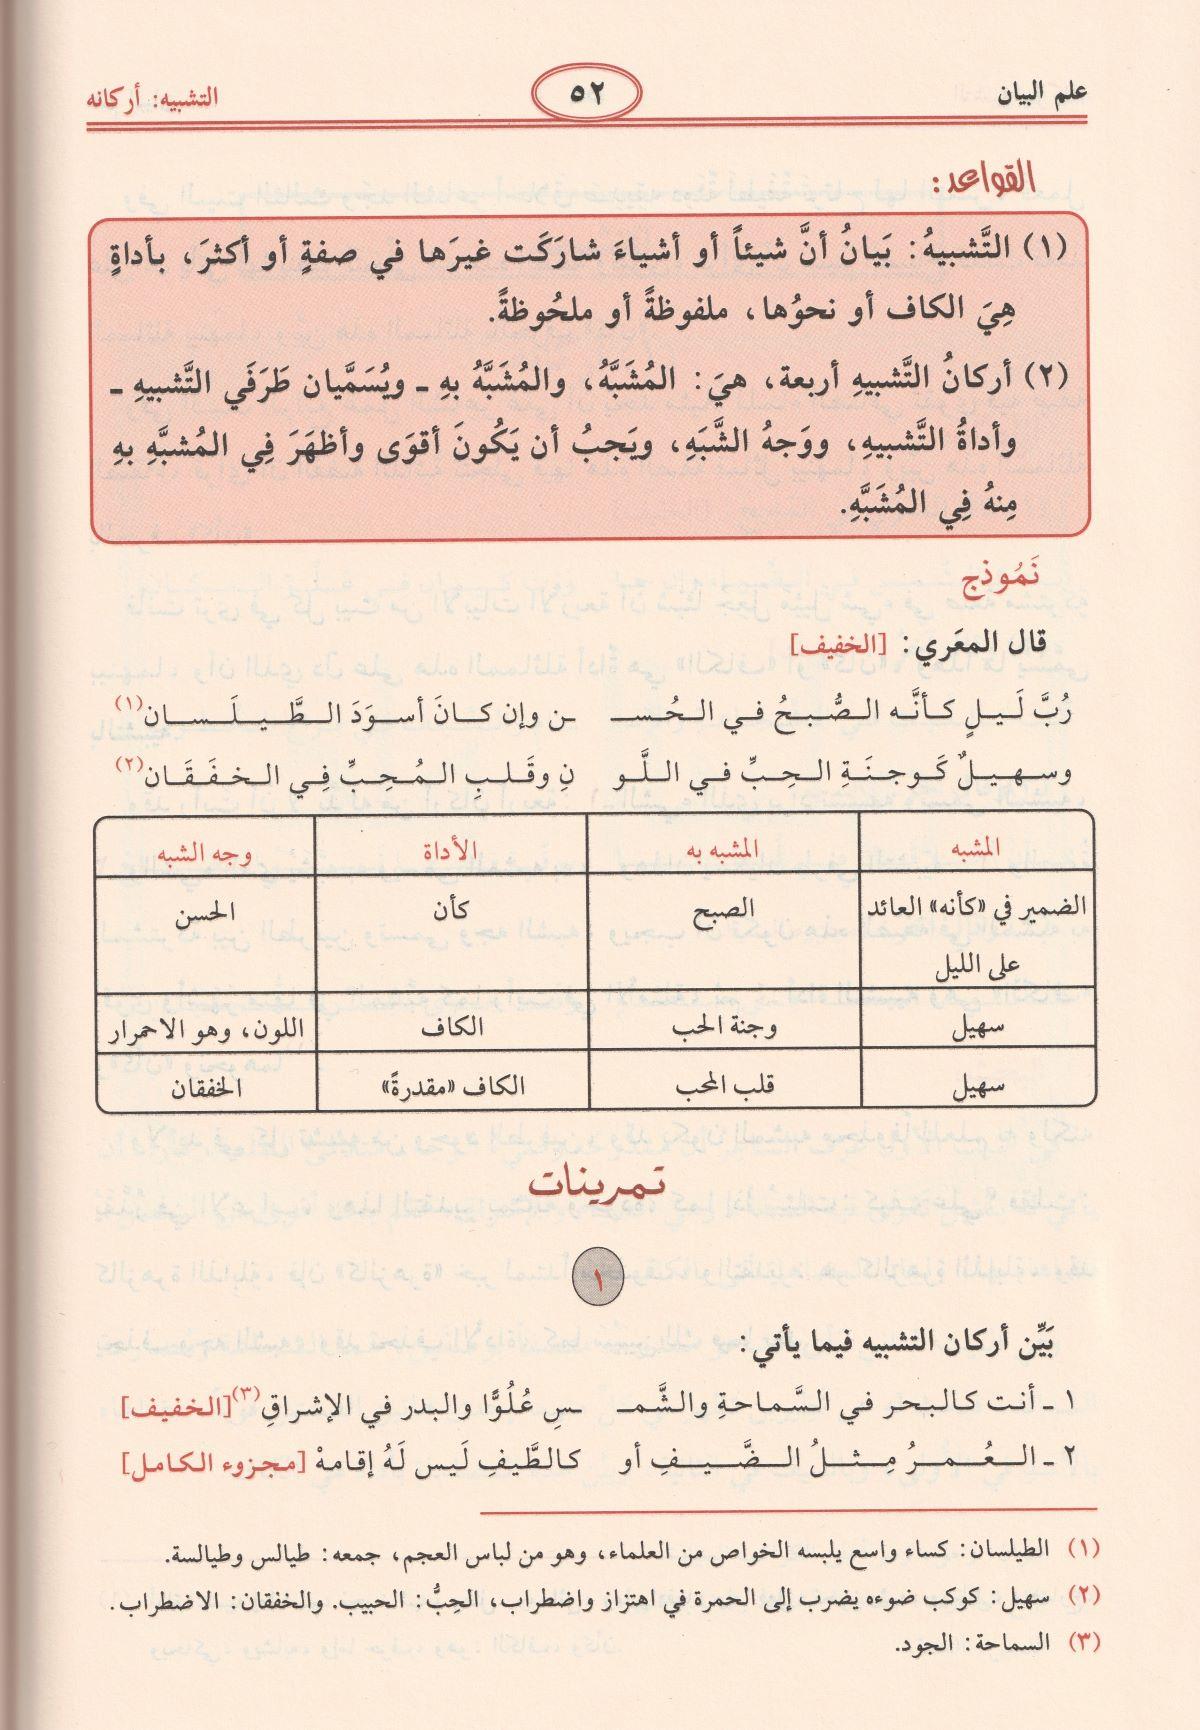 علم البيان
٥٢
التشبيه: أركانه
القواعد:
(١) التَّشبيهُ: بَيانُ أنَّ شيئاً أو أشياءَ شارَكَت غيرَها في صفةٍ أو أكثرَ، بأداةٍ
هِيَ الكاف أو نحوُها، ملفوظةً أو ملحُوظةً.
(٢) أركانُ التَّشبيهِ أربعة، هيَ: المُشَبَّهُ، والمُشَبَّهُ بهِ ـ ويُسَمَّيان طَرَفَي التَّشبيهِ ـ
وأداةُ التَّشبيهِ، ووَجهُ الشَّبَهِ، ويَجبُ أن يَكُونَ أقوَى وأظهَرَ فِي المُشبَّهِ بهِ
مِنهُ فِي المُشَبَّهِ.
نَمُوذج
قال المعَري: [الخفيف]
رُبَّ لَيـلٍ كـأنَّـه الـصُّـبـحُ فـي الـحُـســ ـن وإن كـانَ أسـوَدَ الـطَّـيـلَـسـان(١)
وسـهـيـلٌ كَـوجـنَـةِ الـحِـبِّ فـي الـلَّـو نِ وقَـلـبِ الـمُـحِـبِّ فِـي الـخـفَـقَـان(٢)
المشبه المشبه به الأداة وجه الشبه
الضمير في «كأنه» العائد الصبح كأن الحسن
على الليل
سهيل وجنة الحب الكاف اللون، وهو الاحمرار
سهيل قلب المحب الكاف «مقدرةً» الخفقان
تمرينات
١
بَيِّن أركان التشبيه فيما يأتي:
١ ـ أنت كـالبحـر فـي السَّمـاحـةِ والشَّمـ ـسِ عُلُوًّا والبدر في الإشراقِ(٣) [الخفيف]
٢ ـ الـعُـمـرُ مِـثـلُ الـضَّـيـفِ أو كالطَّيفِ لَيس لَهُ إقامهْ [مجزوء الكامل]
(١) الطيلسان: كساء واسع يلبسه الخواص من العلماء، وهو من لباس العجم، جمعه: طيالس وطيالسة.
(٢) سهيل: كوكب ضوءه يضرب إلى الحمرة في اهتزاز واضطراب، الحِبُّ: الحبيب. والخفقان: الاضطراب.
(٣) السماحة: الجود.